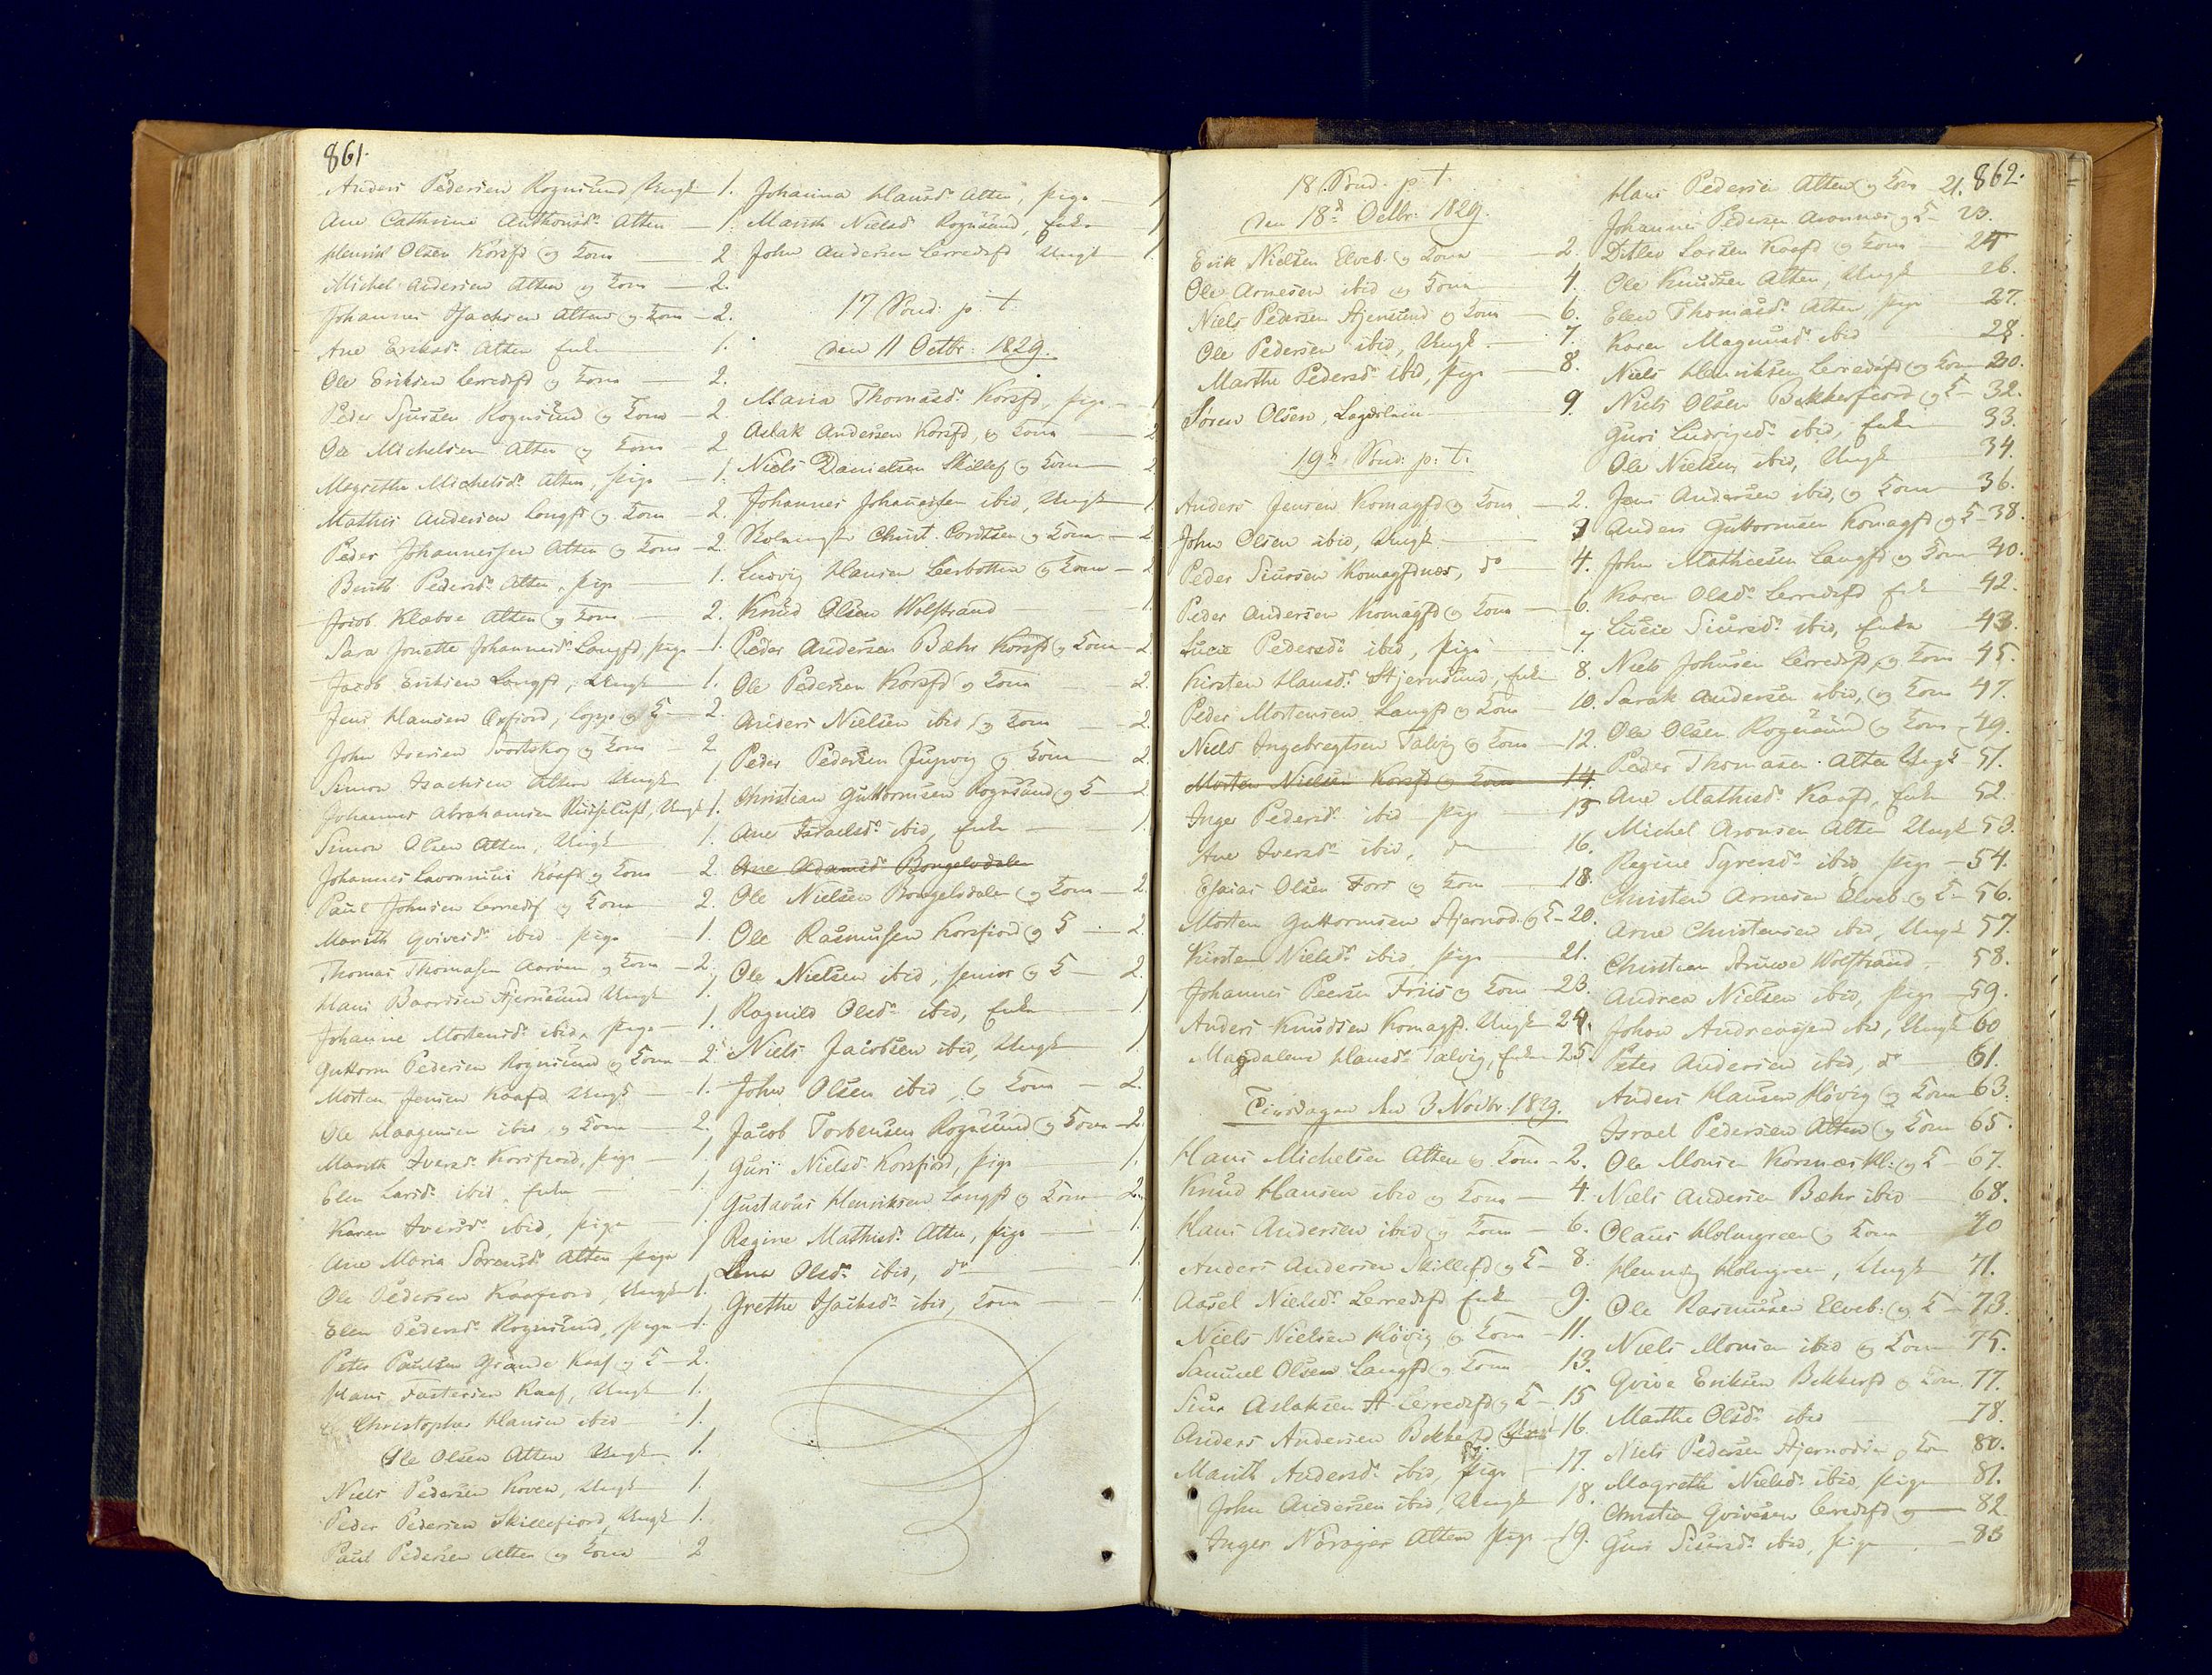 861.
Anders Pedersen Rognsund Ungk 1.
Ane Cathrine Anthonisd. Alten 1.
Henrik Olsen Korsfd og Kone 2
Michel Andersen Alten og Kone 2.
Johannes Isachsen Alten og Kone 2.
Ane Eriksd. Alten Enke 1.
Ole Eriksen Lerredsfd og Kone 2.
Peder Sjursen Rognsund og Kone 2.
Ole Michelsen Alten og Kone 2
Magrethe Michelsd. Alten, pige 1.
Mathis Andersen Langfd og Kone 2.
Peder Johannessen Alten og Kone 2.
Berith Pedersd. Alten, pige 1.
Jacob Klæboe Alten og Kone 2.
Sara Jonette Johannesd. Langfd, pige 1.
Jacob Eriksen Langfd, Ungk 1.
Jens Hansen Oxfjord, Loppe og K 2.
John Iversen Svartskog og Kone 2
Simon Isachsen Alten Ungk 1.
Johannes Abrahamsen Russeluft, Ungk 1.
Simon Olsen Alten, Ungk 1.
Johannes Lavonnius Kaafd og Kone 2.
Paul Johnsen Lerredsf og Kone 2.
Marith Qvivesd. ibid pige 1.
Thomas Thomasen Aaröen og Kone 2.
Hans Baardsen Stjernsund Ungk 1.
Johanne Mortensd. ibid, pige 1.
Guttorm Pedersen Rognsund og Kone 2.
Morten Jensen Kaafd Ungk 1.
Ole Haagensen ibid og Kone 2.
Marith Iversd. Korsfiord, pige 1.
Elen Larsd. ibid, Enke 1.
Karen Iversd. ibid, pige 1
Ane Maria Sörensd. Alten pige 1
Ole Pedersen Kaafiord, Ungk 1.
Elen Pedersd. Rognsund, pige 1.
Peter Paulsen Grande Kaaf og K 2.
Hans Fastersen Kaaf, Ungk 1.
Christopher Hansen ibid 1.
Ole Olsen Alten Ungk 1.
Niels Pedersen Koven, Ungk 1.
Peder Pedersen Skillefiord, Ungk 1.
Paul Pedersen Alten og Kone 2
Johanna Hansd. Alten, pige 1
Marith Nielsd. Rognsund, Enke 1
John Andersen Lerredsfd Ungk 1.
17 Sönd. p. t.
den 11 Octbr. 1829.
Maria Thomasd. Korsfd, pige 1
Aslak Andersen Korsfd, og Kone 2
Niels Danielsen Skillef og Kone 2
Johannes Johannessen ibid, Ungk 1
Christ. Corditsen og Kone 2
Ludvig Hansen Leerbotten og Kone 2
Knud Olsen Wolstrand 1.
Peder Andersen Bæhr Korsfd og Kone 2.
Ole Pedersen Korsfd og Kone 2.
Anders Nielsen ibid og Kone 2.
Peder Pedersen og Kone 2.
Christian Guttormsen Rognsund og K 2
Ane Israelsd. ibid, Enke 1.
Ane Adamsd. Bongelvdalen
Ole Nielsen Bongelvdalen og Kone 2.
Ole Rasmussen Korsfiord og K 2.
Ole Nielsen ibid, senior og K 2.
Ragnild Olsd. ibid, Enke 1
Niels Jacobsen ibid, Ungk 1
John Olsen ibid, og Kone 2.
Jacob Torbensen Rognsund og Kone 2.
Guri Nielsd. Korsfiord, pige 1.
Gustavus Henriksen Langfd og Kone 2.
Regine Mathisd. Alten, pige 1.
Lena Olsd. ibid, do 1.
Grethe Isachsd. ibid, Kone 1.
18. Sönd. p. t.
den 18d Octbr. 1829.
Erik Nielsen Elveb. og Kone 2.
Ole Arnesen ibid og Kone 4.
Niels Pedersen Stjernsund og Kone 6.
Ole Pedersen ibid, Ungk. 7.
Marthe Pedersd. ibid, pige 8.
Sören Olsen, Lagerlein 9.
19d Sönd. p: t.
Anders Jensen Komagfd og Kone 2.
John Olsen ibid, Ungk 3
Peder Siursen Komagfdnæs, do 4.
Peder Andersen Komagfd og Kone 6.
Lucie Pedersd. ibid, pige 7.
Kirsten Hansd. Stjernsund, Enke 8.
Peder Mortensen Langfd og Kone 10.
Niels Ingebregtsen Talvig og Kone 12.
Morten Nielsen Korsfd og Kone 14.
Inger Pedersd. ibid pige 15
Ane Iversd. ibid, do 16.
Esaias Olsen Fors og Kone 18.
Morten Guttormsen Stjernod. og K 20.
Kirsten Nielsd. ibid pige 21.
Johannes Peersen Friis og Kone 23.
Anders Knudsen Komagf. Ungk 24.
Magdalena Hansd. Talvig, Enke 25.
Tirsdagen den 3 Novbr. 1829.
Hans Michelsen Alten og Kone 2.
Knud Hansen ibid og Kone 4.
Hans Andersen ibid og Kone 6.
Anders Andersen Skillefd og K 8.
Aasel Nielsd. Lerredsfd Enke 9.
Niels Nielsen Hövig og Kone 11.
Samuel Olsen Langfd og Kone 13.
Siur Aslaksen St. Lerredsfd og K 15
Anders Andersen Bekkefd Ungk 16.
Marith Andersd. ibid, pige 17.
John Andersen ibid, Ungk 18.
Inger Norager Alten pige 19.
862.
Hans Pedersen Alten og Kone 21.
Johannes Pedersen Aronnæs og K 23.
Ditlev Larsen Kaafd og Kone 25
Ole Knudsen Alten, Ungk 26.
Elen Thomasd. Alten pige 27.
Karen Magnusd. ibid 28.
Niels Henriksen Lerredsfd og Kone 30.
Niels Olsen Bekkerfiord og K 32.
Guri Ludvigsd. ibid, Enke 33.
Ole Nielsen ibid, Ungk 34.
Jens Andersen ibid, og Kone 36.
Anders Guttormsen Komagfd og K 38.
John Mathiesen Langfd og Kone 40.
Karen Olsd. Lerredsfd Enke 42.
Lucie Siursd. ibid, Enke 43.
Niels Johnsen Lerredsfd og Kone 45.
Sarak Andersen ibid, og Kone 47.
Ole Olsen Rognsund og Kone 49.
Peder Thomasen Alten Ungk 51.
Ane Mathisd. Kaafd, Enke 52.
Michel Aronsen Alten Ungk 53.
Regine Syversd. ibid pige 54.
Christen Arnesen Elveb. og K 56.
Arne Christensen ibid, Ungk 57.
Christian Struwe Wolstrand 58.
Andrea Nielsen ibid, pige 59.
Johan Andreassen ibid, Ungk 60
Peter Andersen ibid, do 61.
Anders Hansen Hövig og Kone 63.
Israel Pedersen Alten og Kone 65.
Ole Monsen Kornæs Kl: og K 67.
Niels Andersen Bæhr ibid 68.
Olaus Holmgreen og Kone 70
Henning Holmgreen, Ungk 71.
Ole Rasmusen Elveb. og K 73.
Niels Monsen ibid og Kone 75.
Qvive Eriksen Bekkerfd og Kone 77.
Marthe Olsd. ibid 78.
Niels Pedersen og Kone 80.
Magrethe Nielsd. ibid, pige 81.
Christian Qvivesen Lerredsfd 82
Guri Siursd. ibid, pige 83